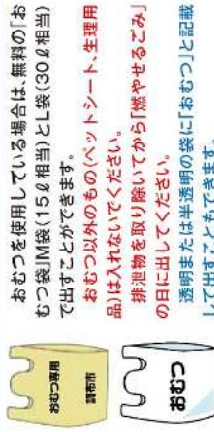 おむつを使用している場合は、無料の「お
むつ袋」M袋(15ℓ相当)とL袋(30ℓ相当)
で出すことができます。
おむつ以外のもの(ペットシート、生理用
品)は入れないでください。
排泄物を取り除いてから「燃やせるごみ」
の日に出してください。
透明または半透明の袋に「おむつ」と記載
して出すこともできます。
おむつ専用
調布市
おむつ